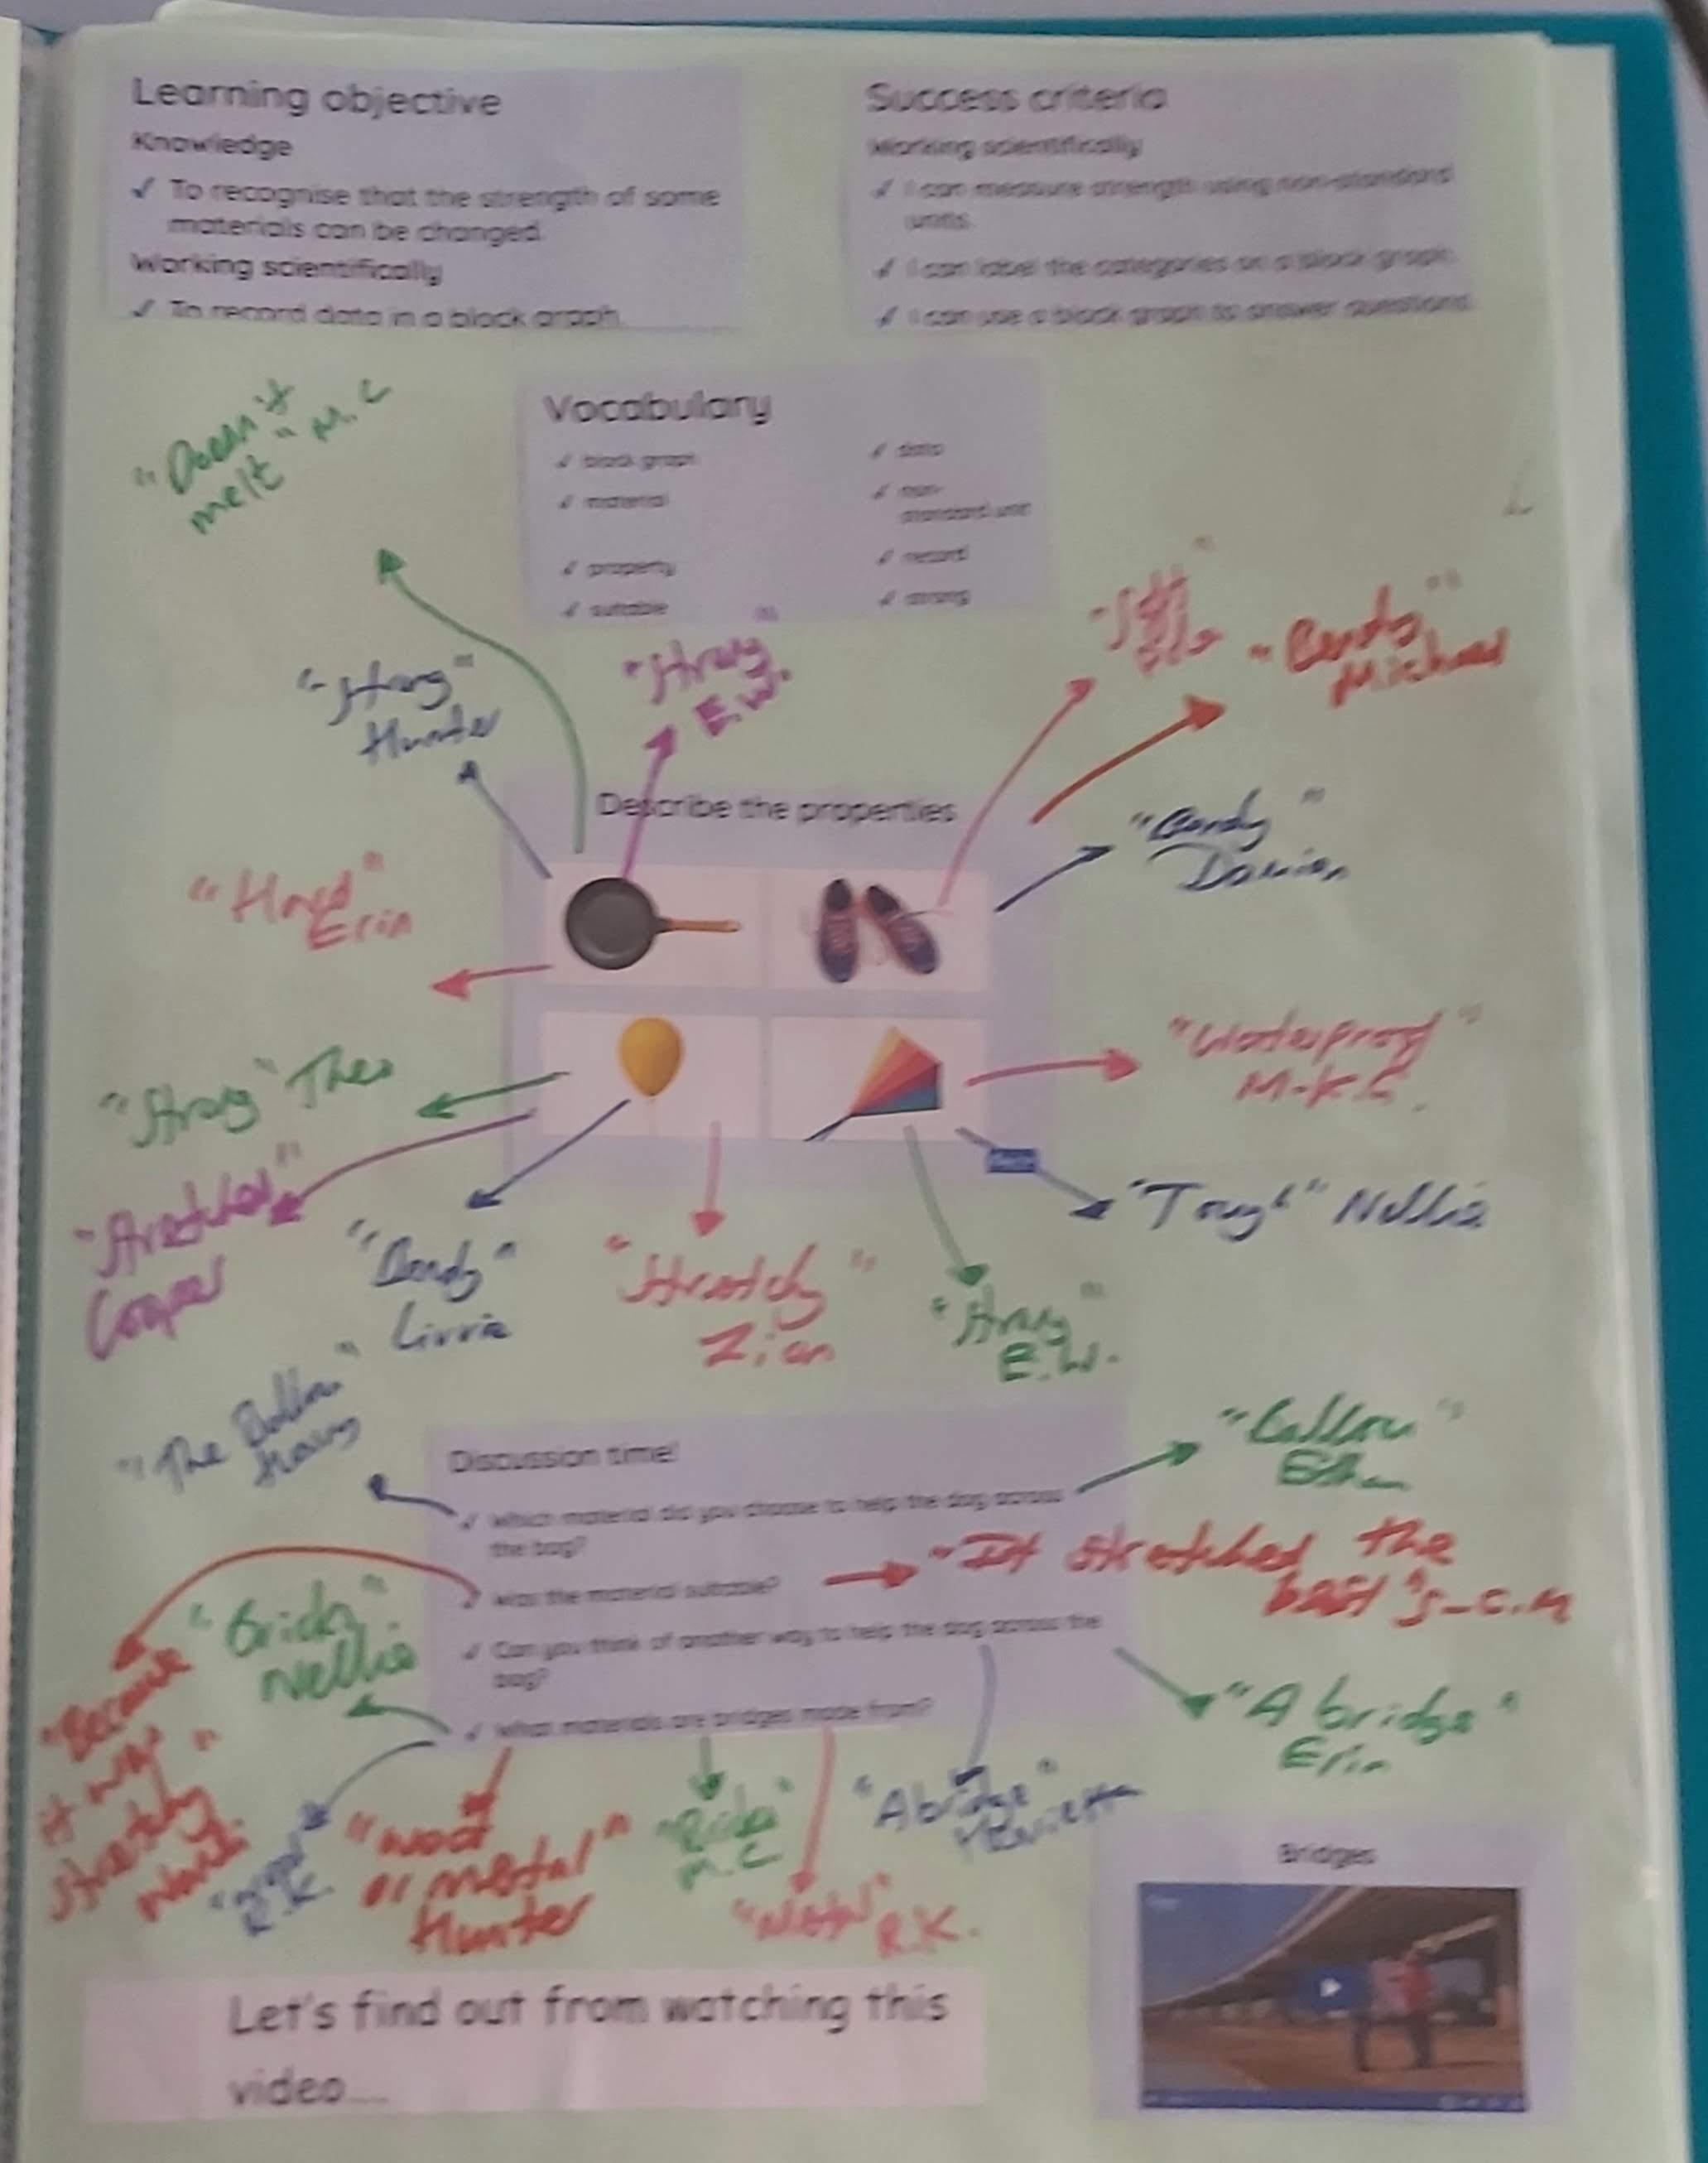 Learning objective
Knowledge
✓ To recognise that the strength of some
materials can be changed.
Working scientifically
✓ To record data in a block graph.
Success criteria
Working scientifically
✓ I can measure strength using non-standard
units.
✓ I can label the categories on a block graph.
✓ I can use a block graph to answer questions.
"Doesn't
melt" M.C
Vocabulary
✓ block graph
✓ material
✓ property
✓ suitable
✓ data
✓ non-
standard unit
✓ record
✓ strong
"Strong"
Hunter
"Strong"
E.W.
"Bendy"
Michael
Describe the properties
"Bendy"
Damien
"Hard"
Erin
"Strong" Theo
"Waterproof"
"Stretches"
Cooper
"Bendy"
Livvie
"Stretchy"
Zian
"Strong"
E.W.
"Tough" Nellie
"The Balloon"
Discussion time!
✓ Which material did you choose to help the dog across
the bog?
✓ Was the material suitable?
✓ Can you think of another way to help the dog across the
bog?
✓ What materials are bridges made from?
"Balloon"
"It stretched the
best" J-C.M
"Because
it was
stretchy"
Nellie
"A bridge"
Erin
"A bridge"
Henrietta
R.K.
"Wood
or metal"
Hunter
M.C
"Metal"
R.K.
Bridges
Let's find out from watching this
video....